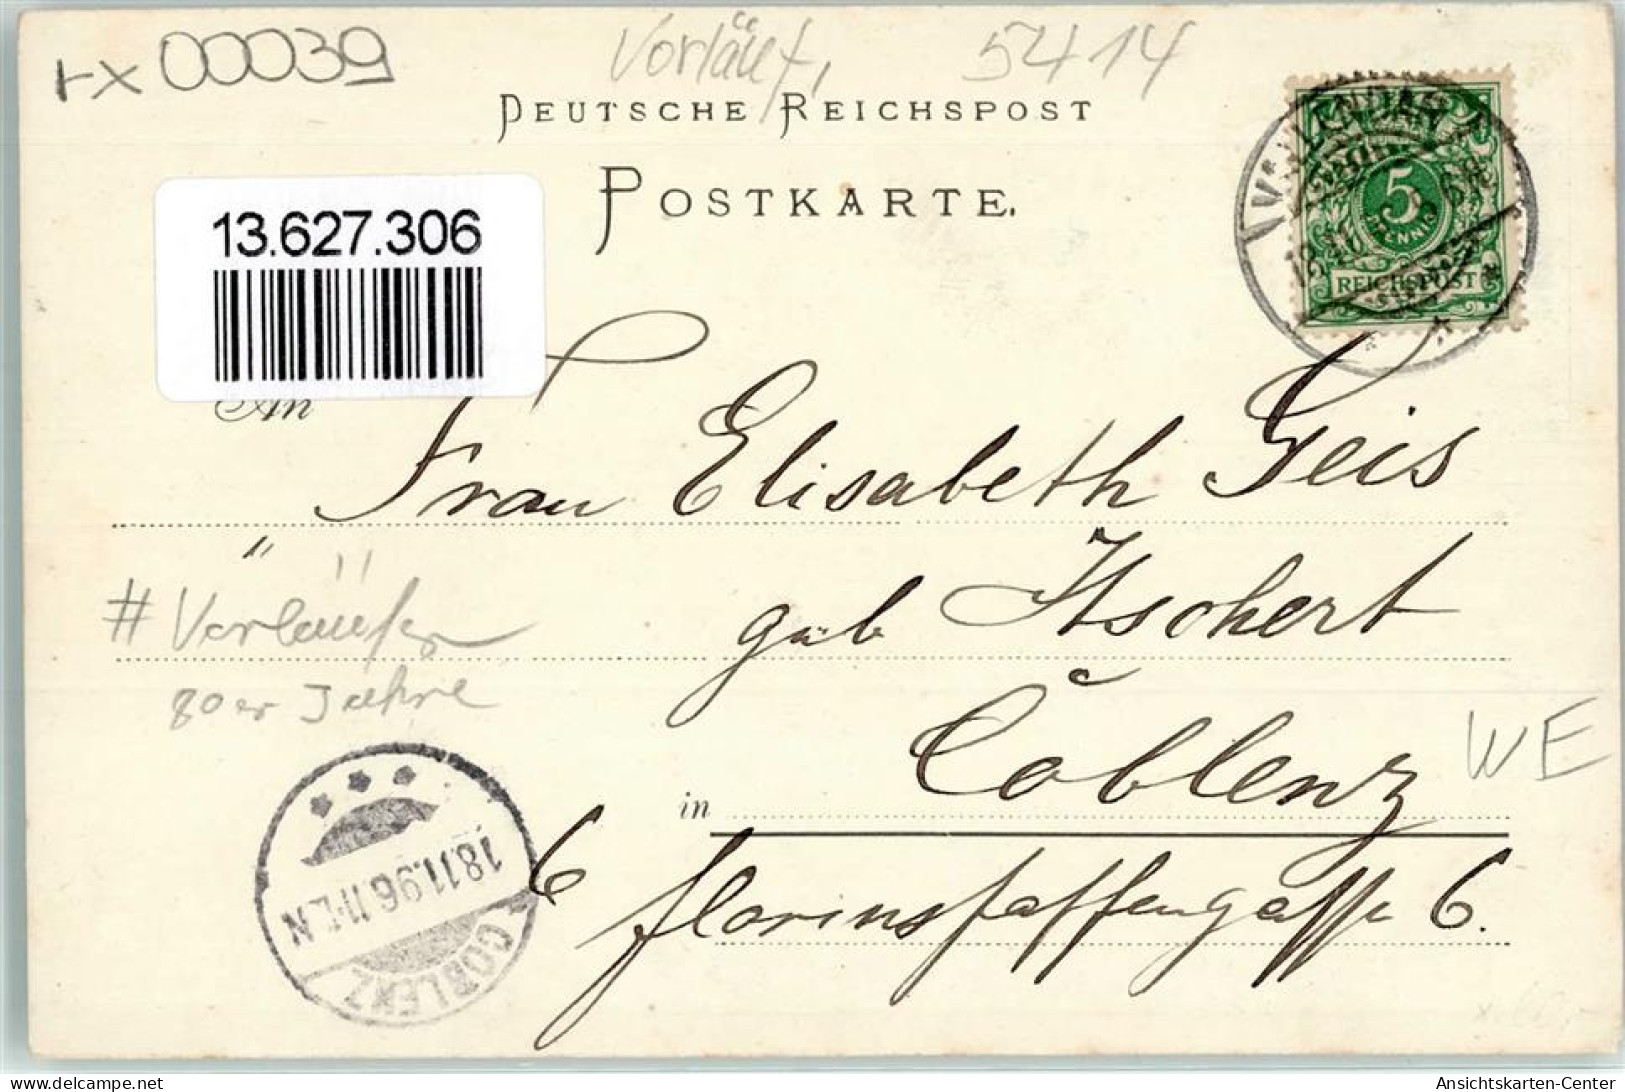 rx 00039
Vorläuf, 5414
DEUTSCHE REICHSPOST
POSTKARTE.
VALLENDAR
5
PFENNIG
REICHSPOST
13.627.306
An
Frau Elisabeth Geis
geb Itschert
# Vorläufer
80er Jahre
in Coblenz
WE
6 Florinspfaffengasse 6.
18.11.96.11-12.N
COBLENZ
delcampe.net
Ansichtskarten-Center